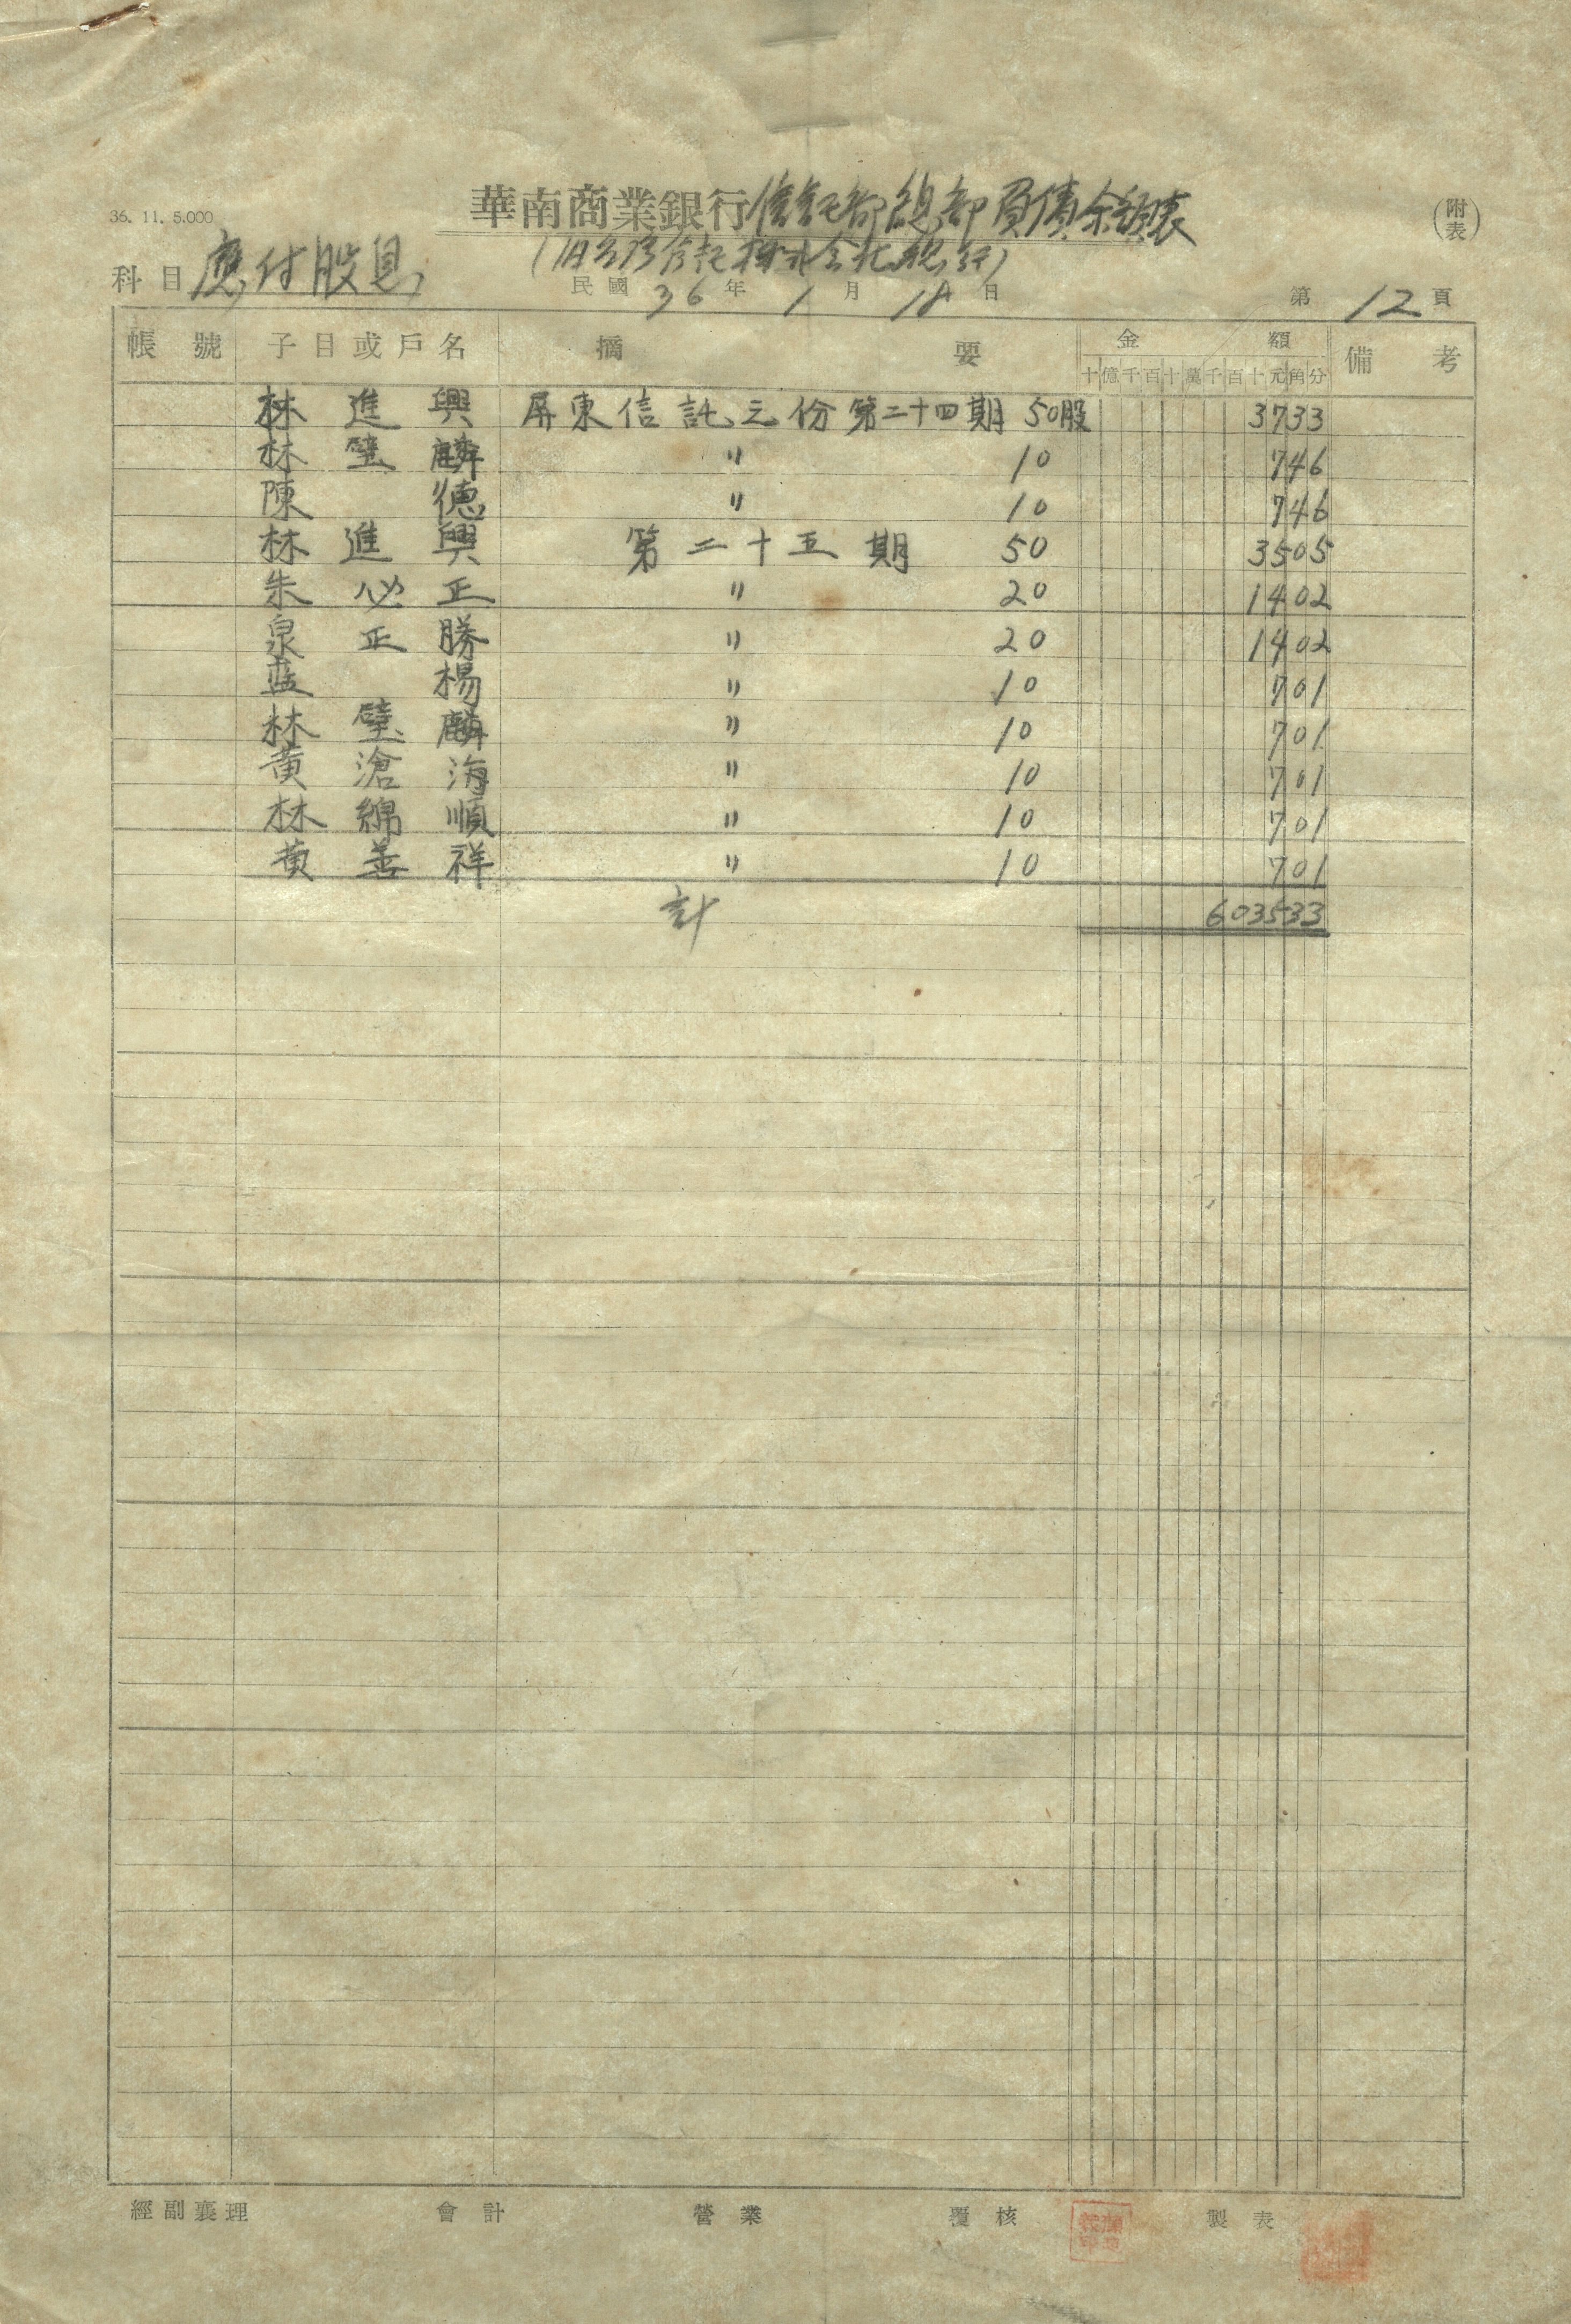 36. 11. 5.000
華南商業銀行信託部總部負債余額表
(附表)
(旧台湾信託株式会社總行)
科目 應付股息
民國 36 年 1 月 18 日
第 12 頁
帳號 子目或戶名 摘要 金額 備考
十億千百十萬千百十元角分
林進興 屏東信託之份第二十四期 50股 3733
林璧麟 〃 10 746
陳德 〃 10 746
林進興 第二十五期 50 3505
朱必正 〃 20 1402
泉正勝 〃 20 1402
藍楊 〃 10 701
林璧麟 〃 10 701
黃滄海 〃 10 701
林綿順 〃 10 701
黃善祥 〃 10 701
計 603533
經副襄理 會計 營業 覆核 製表